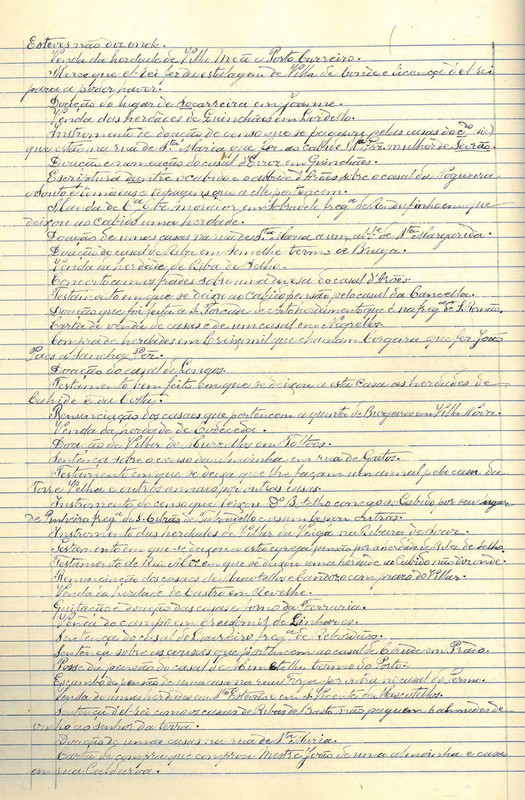 Esteves não diz onde.
Venda da herdade de Villa Meã e Porto Carreiro.
Merce que el-rei fez da estalagem de Villa do Conde e licença d'el-rei
para a poder haver.
Doação do lugar de Socarreira em Joanne.
Venda das herdades de Guinchães em Lordello.
Instromento de doação do censo que se pagava pelas casas do
que estão na rua de Sta Maria, que fez ao cabido mulher de
Doação e numeação do casal d'Erroz em Guinchães.
Escriptura dentre o cabido e o abbade d'Arões sobre o casal da Nogueira
e Souto e omeidas e terragens que a elle pertencem.
Manda de frega de Rendufinho em que
deixou ao Cabido uma herdade.
Doação de umas casas na rua de Sta Maria a um de Sta Margarida.
Doação do casal de Riba em Semelhe termo de Braga.
Venda da herdade de Riba de Selho.
Concerto com os frades sobre uma devesa do casal d'Arões.
Testamento em que se deixa ao Cabido pensão pelo casal da Cancella.
Doação que foi feita a S. Torcade de que é na frega de S. Romão.
Carta de venda de casas e de um casal em Negrellos.
Compra de herdades em Creixomil que chamam Corgaira que fez João
Paes a Sancha Pez.
Doação do casal de Longos.
Testamento bem feito em que se deixou a esta casa as herdades de
Cahide e da Costa.
Renunciação dos casaes que pertencem a quinta de Burgeiros em Villa Nova.
Venda da herdade de Codeceda.
Doação do Villar de Murrellos em
Sentença sobre o censo da almoinha em rua de Gatos.
Testamento em que se deixa que lhe façam um annal pela casa da
Torre Velha e outros annaes por outras casas.
Instromento do censo que leixou conego ao Cabido por seu lugar
de Pinheiro freg. de S. de e assim leixou outras.
Instromento das herdades de Villar da Veiga na Ribeira de Soaz.
Testamento em que se deixou a esta egreja pensão por a herdade de Riba de Selho.
Testamento de Rui em que se deixou uma herdade ao Cabido não diz onde.
Renunciação dos casaes de e com prazo do Villar.
Venda da herdade de Castro em Revelhe.
Quitação e doação das casas e forno da Ferraria.
Venda do campo em Creixomil de Linhares.
Sentença do casal do Loureiro frega de
Sentença sobre as causas que pertencem ao casal de Cahide em Prado.
Posse da pensão do casal de termo do Porto.
Escambo da pensão de uma casa na rua por outra no casal do Termo.
Venda de umas herdades em Sto Estevão e em S. Vicente de Mascotellos.
Sentença d'el-rei como os casaes de Ribas de Basto não paguem de
vinho ao senhor da terra.
Doação de umas casas na rua de Sta Luzia.
Carta de compra que comprou Mestre João de uma almoinha e casa
em rua Caldeiroa.